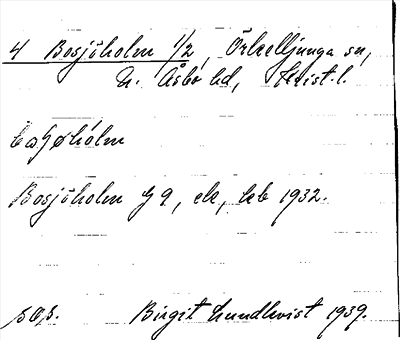 4 Bosjöholm 1/2, Örkelljunga sn,
N. Åsbo hd, Krist. l.
Bosjöholm G 9, ek, kb 1932.
Birgit Lundkvist 1939.